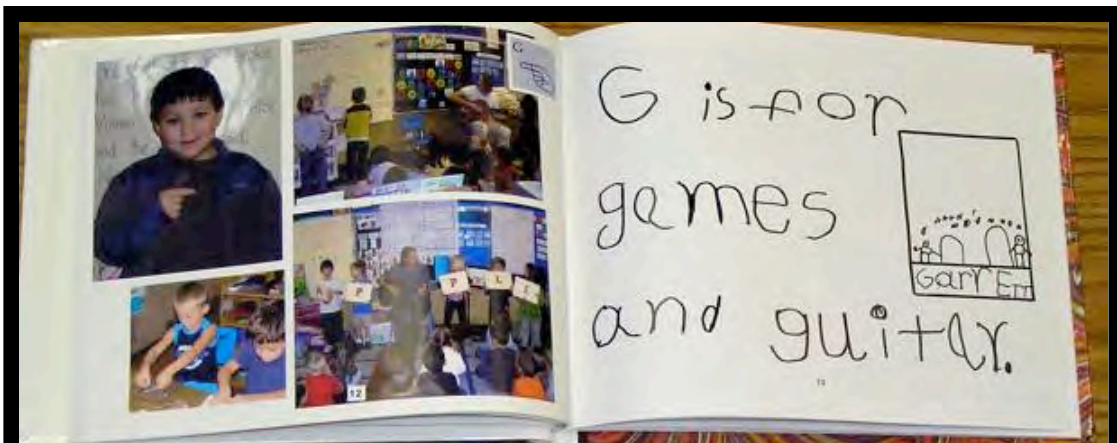 G
P
P
L
I
12
G is for
games
and guitar.
Garr Ett
13